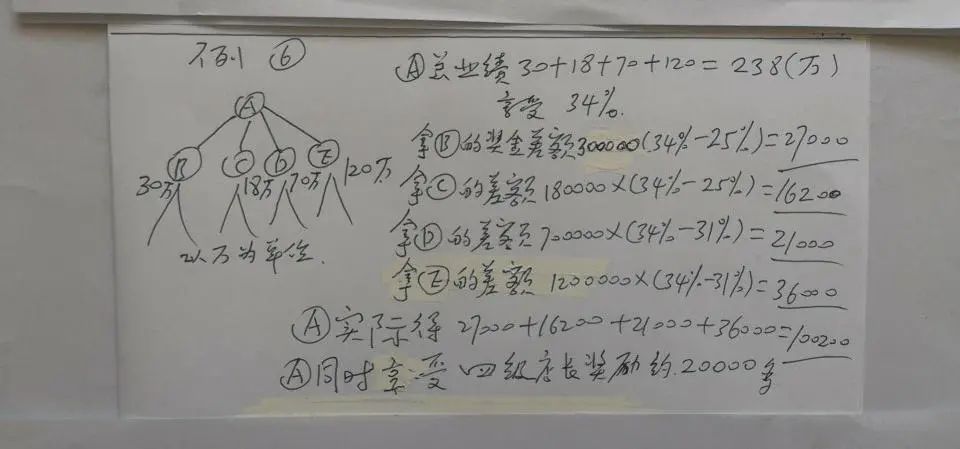 示例 ⑥
Ⓐ总业绩 30+18+70+120=238(万)
享受 34%.
Ⓐ
Ⓑ Ⓒ Ⓓ Ⓔ
30万 18万 70万 120万
以万为单位.
拿Ⓑ的奖金差额300000(34%-25%)=27000
拿Ⓒ的差额 180000×(34%-25%)=16200
拿Ⓓ的差额 700000×(34%-31%)=21000
拿Ⓔ的差额 1200000×(34%-31%)=36000
Ⓐ实际得 27000+16200+21000+36000=100200
Ⓐ同时享受四级店长奖励约.20000多